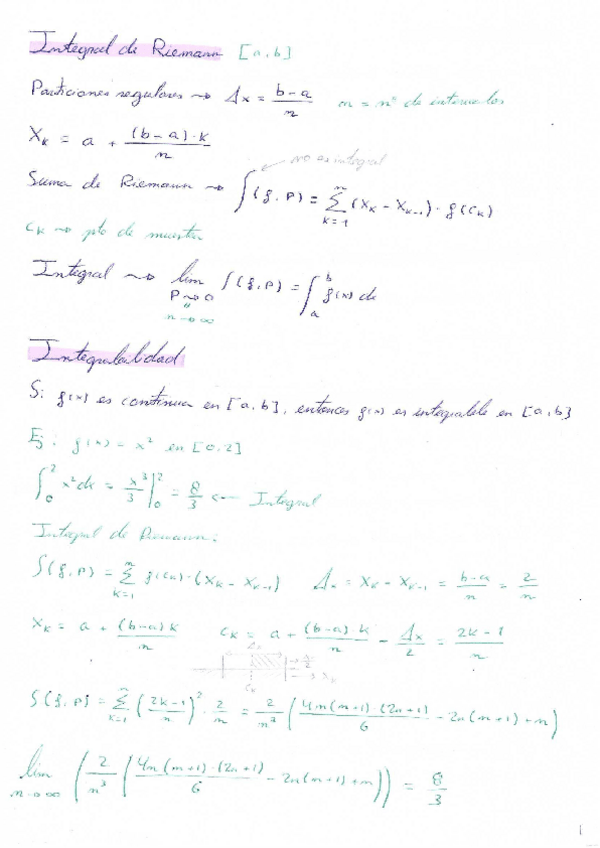 Integral de Riemann [a,b]
Particiones regulares → Δx = (b-a)/n n = nº de intervalos
Xk = a + ((b-a)·k)/n
no es integral
Suma de Riemann → ∫(f,P) = Σ_{k=1}^{n} (Xk - Xk-1) · f(ck)
Ck → pto de muestra
Integral → lim_{P→0} ∫(f,P) = ∫_a^b f(x) dx
n→∞
Integrabilidad
Si f(x) es continua en [a,b], entonces f(x) es integrable en [a,b]
Ej: f(x) = x² en [0,2]
∫_0^2 x² dx = x³/3 |_0^2 = 8/3 ← Integral
Integral de Riemann:
∫(f,P) = Σ_{k=1}^{n} f(ck)·(Xk - Xk-1) Δx = Xk - Xk-1 = (b-a)/n = 2/n
Xk = a + ((b-a)k)/n Ck = a + ((b-a)·k)/n - Δx/2 = (2k-1)/n
Δx → Δx/2
Ck → Xk
∫(f,P) = Σ_{k=1}^{n} ((2k-1)/n)² · 2/n = 2/n³ (4n(n+1)·(2n+1)/6 - 2n(n+1)+n)
lim_{n→∞} (2/n³ (4n(n+1)·(2n+1)/6 - 2n(n+1)+n)) = 8/3
1